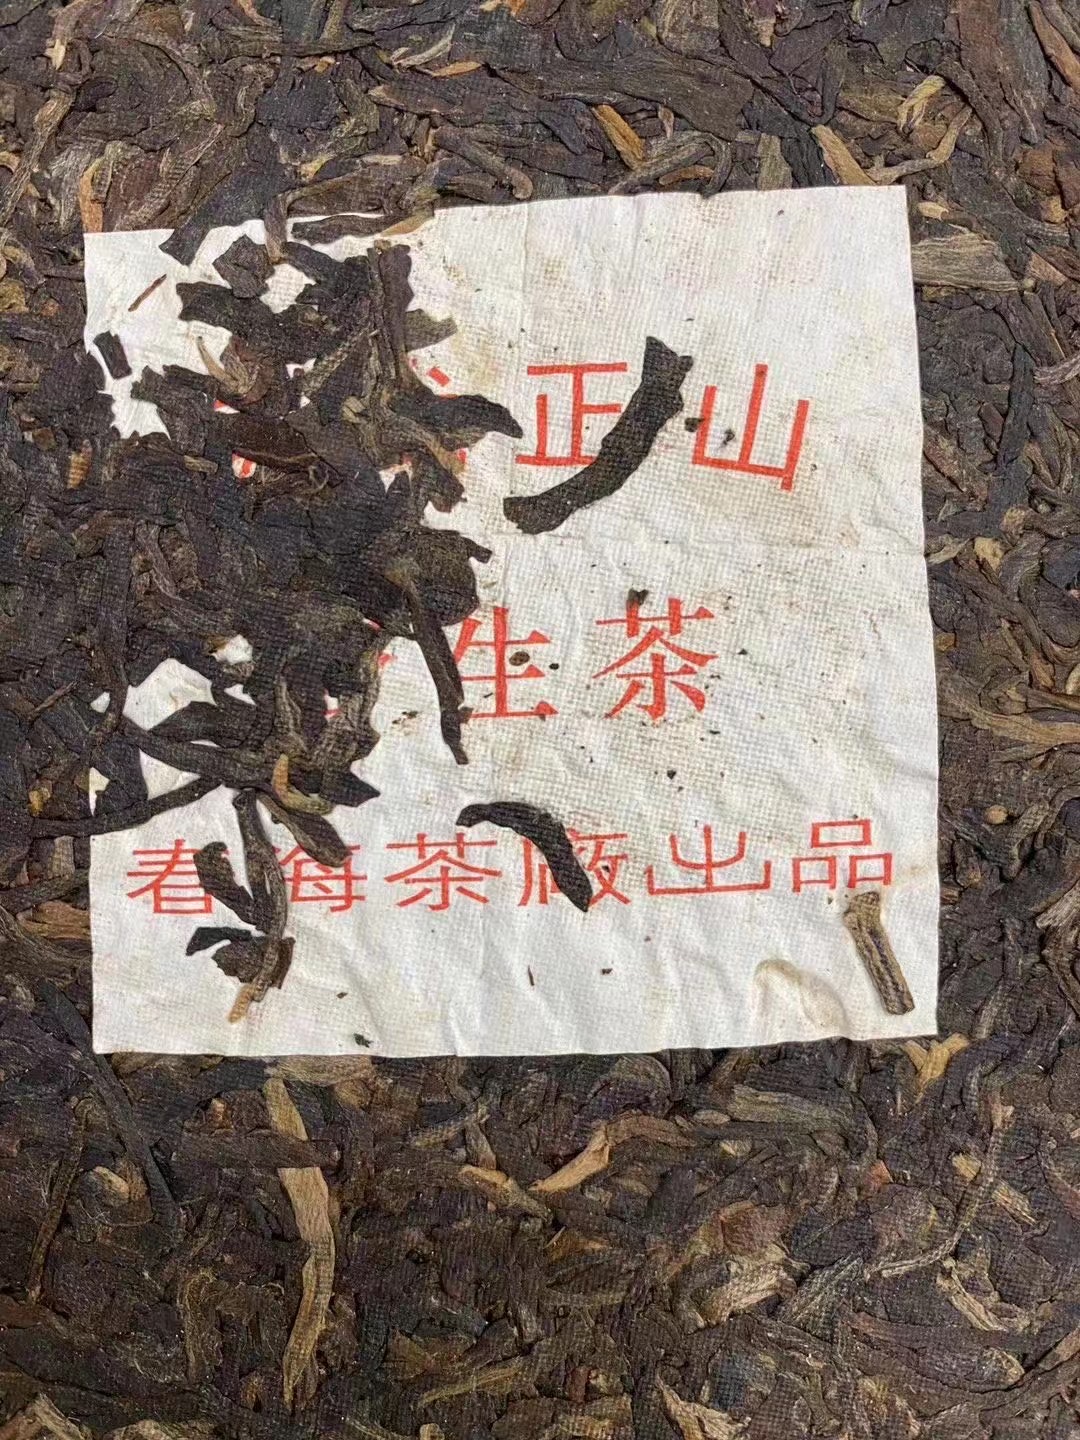 正山
生茶
春海茶廠出品